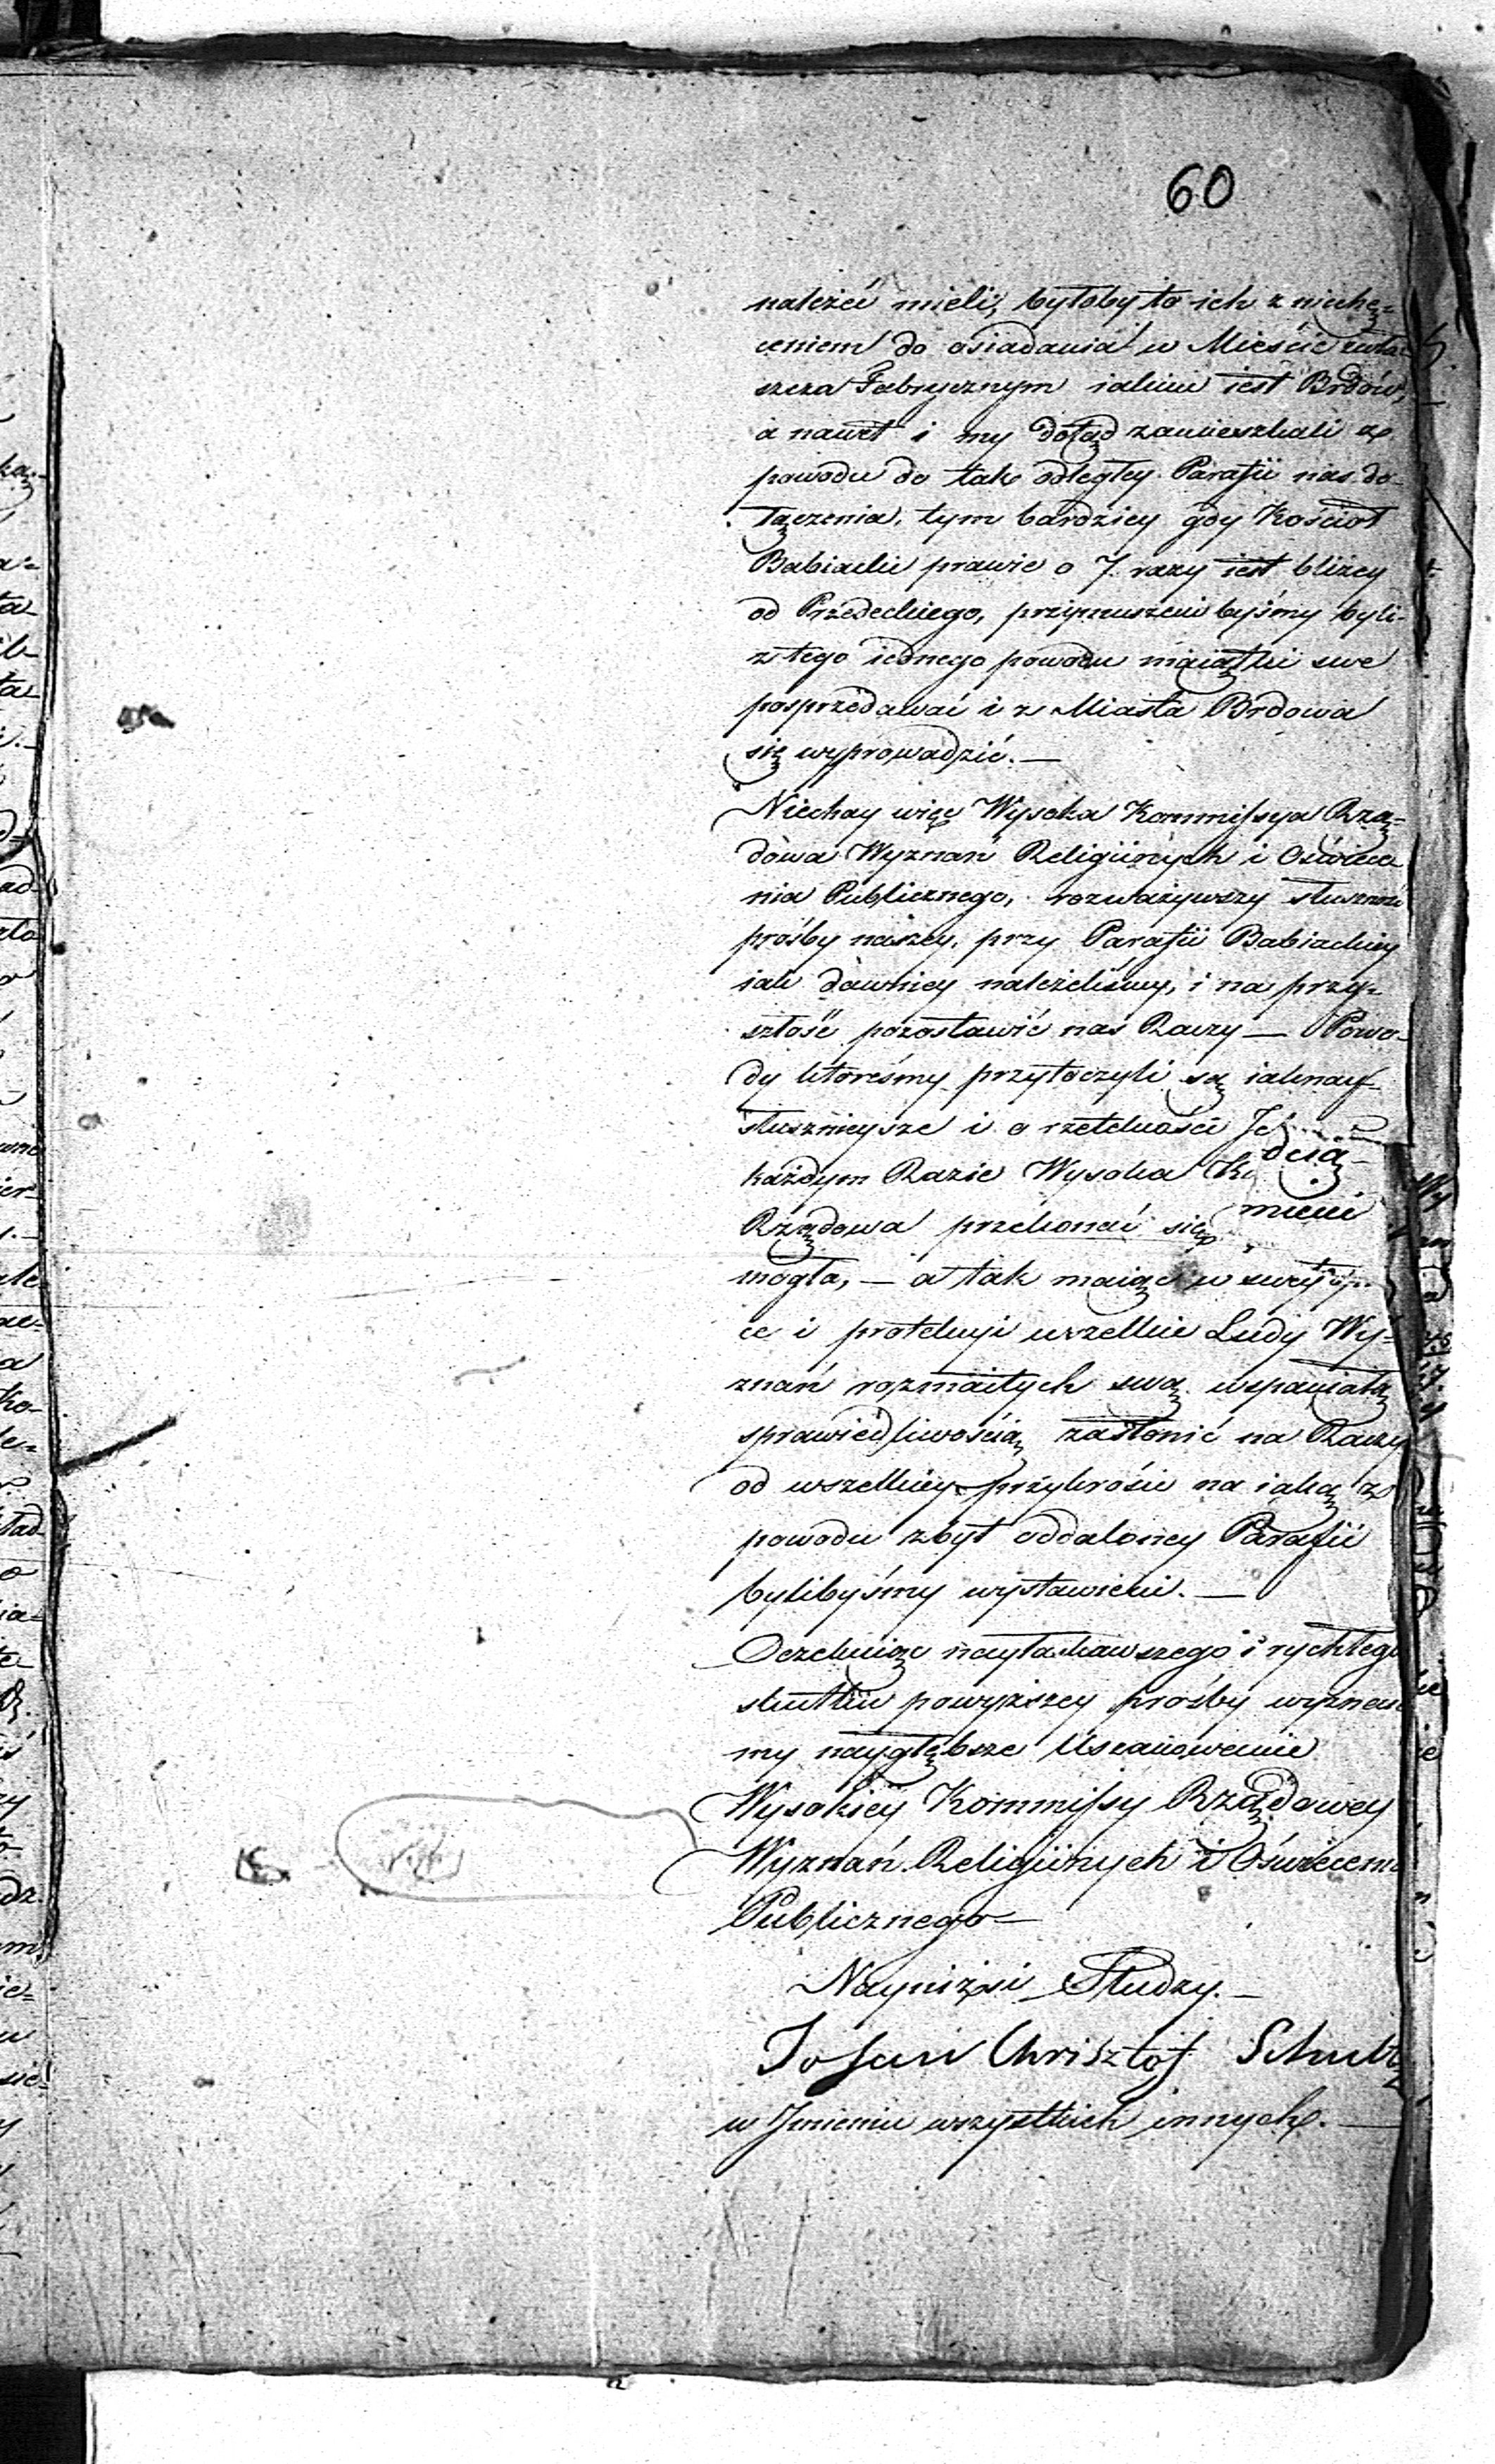 60
należeć mieli, byłoby to ich zniechę-
ceniem do osiadania w Mieście zwła-
szcza Fabrycznym iakim iest Brdów,
a nawet i my dotąd zamieszkali z
powodu do tak odległey Parafii nas do-
łączenia, tym bardziey gdy Kościół
Babiacki prawie o 7. razy iest bliżey
od Przedeckiego, przymuszeni byśmy byli
z tego iednego powodu maiątki swe
posprzedawać i z Miasta Brdowa
się wyprowadzić. —
Niechay więc Wysoka Kommissya Rzą-
dowa Wyznań Religiinych i Oświece
nia Publicznego, rozważywszy słuszność
prośby naszey, przy Parafii Babiackiey
iak dawniey należeliśmy, i na przy-
szłość pozostawić nas Raczy — Powo-
dy któreśmy przytoczyli są iaknay-
słusznieysze i o rzetelności
każdym Razie Wysoka
Rządowa przekonać się
mogła, — a tak maiąc w swey
ce i protekcyi wszelkie Ludy Wy-
znań rozmaitych swą wspaniałą
sprawiedliwością zasłonić na Raczy
od wszelkiey przykrości na iaką z
powodu zbyt oddaloney Parafii
bylibyśmy wystawieni. —
Oczekuiąc nayłaskawszego i rychłego
skutku powyższey prośby wyznaie
my naygłębsze Uszanowanie
Wysokiey Kommissy Rządowey
Wyznań Religiinych i Oświecenia
Publicznego —
Nayniżsi Słudzy. —
Johan Chrisztof Schultz
w Imieniu wszystkich innych. —